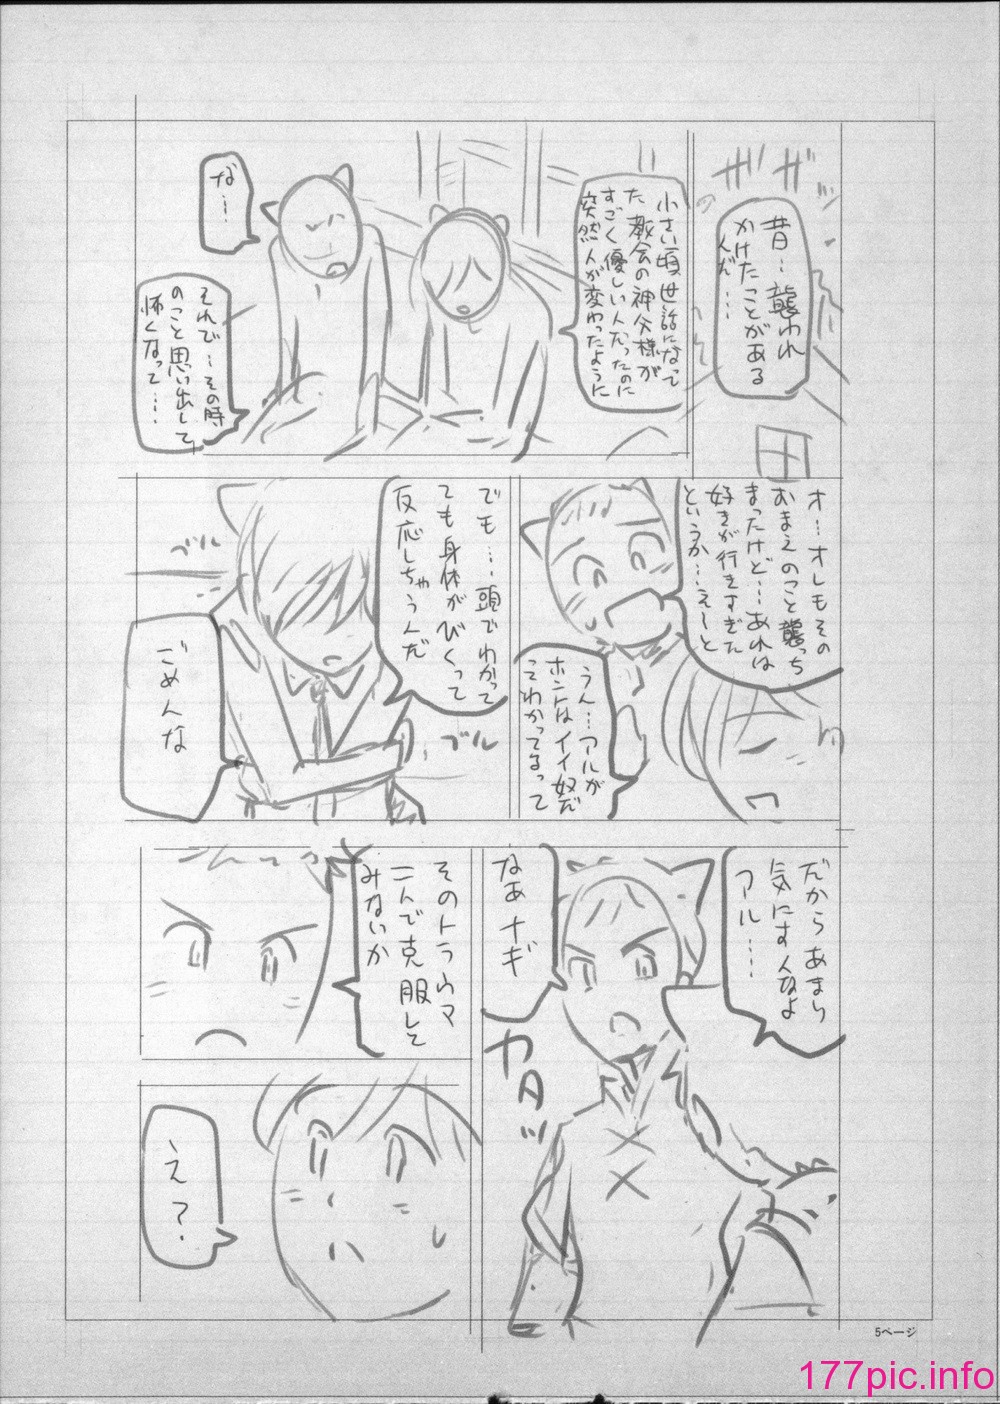 ザザッ
昔…襲われ
かけたことがある
んだ…
小さい頃世話になって
た教会の神父様が
すごく優しい人だったのに
突然人が変わったように
な…
それで…その時
のこと思い出して
怖くなって…
オ…オレもその
おまえのこと襲っち
まったけど…あれは
好きが行きすぎた
というか…えーと
うん…アルが
ホントはイイ奴だ
ってわかってるって
でも…頭でわかって
ても身体がびくって
反応しちゃうんだ
ブル
ブル
ごめんな
だからあまり
気にすんなよ
アル…
なあナギ
ガタッ
そのトラウマ
二人で克服して
みないか
え?
5ページ
177pic.info